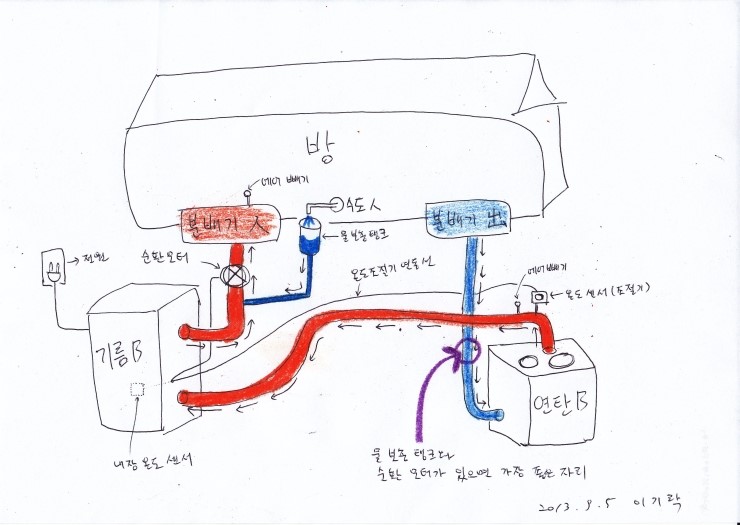 방
에어 빼기
수도 入
분배기 入
분배기 出
물보충탱크
전원
순환모터
온도조절기 연동선
에어빼기
온도센서(조절기)
기름B
연탄B
내장 온도 센서
물 보충 탱크와
순환 모터가 있으면 가장 좋은 자리
2013. 9. 5 이기락